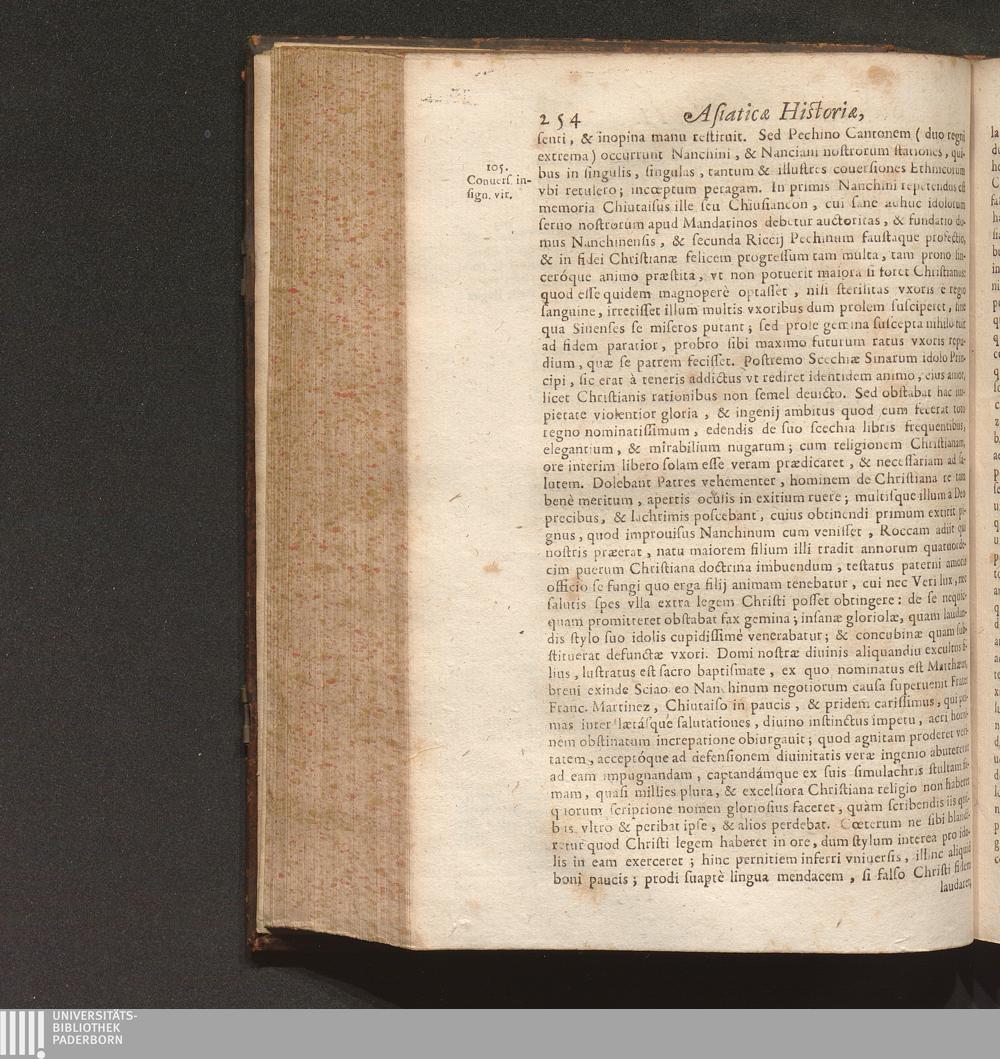 254 Asiaticæ Historiæ,
105.
Conuers. in-
sign. vir.
senti, & inopina manu restituit. Sed Pechino Cantonem (duo regni
extrema) occurrunt Nanchini, & Nanciani nostrorum stationes, qui-
bus in singulis, singulas, tantum & illustres couersiones Ethnicorum
vbi retulero; incœptum peragam. In primis Nanchini repetendus est
memoria Chiutaisus ille seu Chiusiancon, cui sane adhuc idolorum
seruo nostrorum apud Mandarinos debetur auctoritas, & fundatio do-
mus Nanchinensis, & secunda Riccij Pechinum faustaque profectio,
& in fidei Christianæ felicem progressum tam multa, tam prono sin-
ceróque animo præstita, vt non potuerit maiora si foret Christianus:
quod esse quidem magnoperè optasset, nisi sterilitas vxoris è regio
sanguine, irretisset illum multis vxoribus dum prolem susciperet, sine
qua Sinenses se miseros putant; sed prole gemina suscepta nihilo fuit
ad fidem paratior, probro sibi maximo futurum ratus vxoris repu-
dium, quæ se patrem fecisset. Postremo Scechiæ Sinarum idolo Prin-
cipi, sic erat à teneris addictus vt rediret identidem animo, eius amor,
licet Christianis rationibus non semel deuicto. Sed obstabat hac im-
pietate violentior gloria, & ingenij ambitus quod eum fecerat toto
regno nominatissimum, edendis de suo scechia libris frequentibus,
elegantium, & mirabilium nugarum; cum religionem Christianam,
ore interim libero solam esse veram prædicaret, & necessariam ad sa-
lutem. Dolebant Patres vehementer, hominem de Christiana re tam
benè meritum, apertis oculis in exitium ruere; multisque illum à Deo
precibus, & lachrimis poscebant, cuius obtinendi primum extitit pi-
gnus, quod improuisus Nanchinum cum venisset, Roccam adiit qui
nostris præerat, natu maiorem filium illi tradit annorum quatuorde-
cim puerum Christiana doctrina imbuendum, testatus paterni amoris
officio se fungi quo erga filij animam tenebatur, cui nec Veri lux, nec
salutis spes vlla extra legem Christi posset obtingere: de se nequic-
quam promitteret obstabat fax gemina; insanæ gloriolæ, quam laudan-
dis stylo suo idolis cupidissimè venerabatur; & concubinæ quam sub-
stituerat defunctæ vxori. Domi nostræ diuinis aliquandiu excultus fi-
lius, lustratus est sacro baptismate, ex quo nominatus est Matthæus,
breui exinde Sciao eo Nanchinum negotiorum causa superuenit Frater
Franc. Martinez, Chiutaiso in paucis, & pridem carissimus, qui pri-
mas inter lætásque salutationes, diuino instinctus impetu, acri homi-
nem obstinatum increpatione obiurgauit; quod agnitam proderet veri-
tatem, acceptóque ad defensionem diuinitatis veræ ingenio abuteretur
ad eam impugnandam, captandámque ex suis simulachris stultam fa-
mam, quasi millies plura, & excelsiora Christiana religio non haberet
quorum scriptione nomen gloriosius faceret, quàm scribendis iis qui-
bus vltro & peribat ipse, & alios perdebat. Cœterum ne sibi blandi-
retur quod Christi legem haberet in ore, dum stylum interea pro ido-
lis in eam exerceret; hinc pernitiem inferri vniuersis, illinc aliquid
boni paucis; prodi suaptè lingua mendacem, si falso Christi fidem
laudaret,
UNIVERSITÄTS-
BIBLIOTHEK
PADERBORN